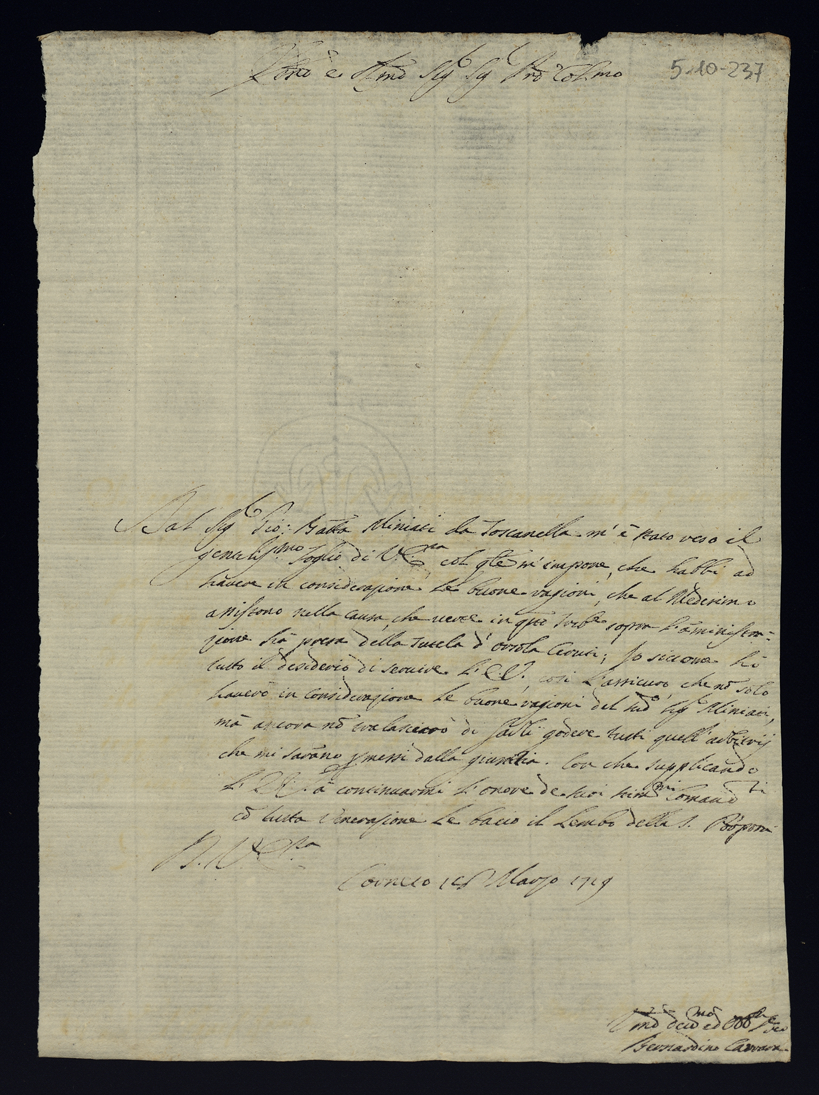 e Rmo Sigr Sigr Pro Colmo
5-10-237
Dal Sigr Gio: Batta Miniati da Toscanella m'è stato reso il
gentiliss.mo foglio di V. Ecc.ra col qle m'impone, che habbi ad
havere in considerazione le buone ragioni, che al Medesimo
assistono nella causa, che verte in qto Trible sopra l'aministra=
zione già presa della Tutela d'Orsola Cerusi; Io siccome hò
tutto il desiderio di servire l'E.V., così l'assicuro, che nō solo
haverò in considerazione le buone ragioni del sud.o Sigr Miniati,
mà ancora nō tralasciarò di farli godere tutti quell'arbitrij
che mi sarāno pmessi dalla giustitia. Con che supplicando
l'E.V. à continuarmi l'onore de suoi stim.mi Comandi
cō tutta Venerazione le bacio il Lembo della S. Porpora
D. V. Ecc.ra
Corneto 16 Marzo 1719
Bernardino Carrara